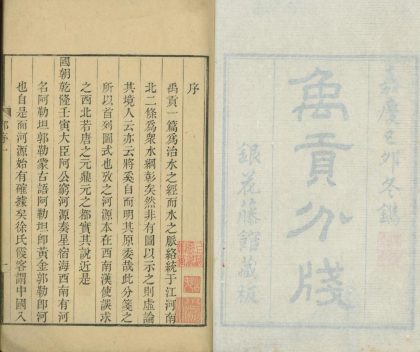 嘉慶己卯冬鐫
禹貢分牋
銀花藤館藏板
序
禹貢一篇爲治水之經而水之脈絡統于江河南
北二條爲衆水綱彰矣然非有圖以示之則虛論
其境人云亦云將奚自而明其原委哉此分箋之
所以首列圖式也攷之河源本在西南漢使誤求
之西北若唐之元鼎元之都實其說近是
國朝乾隆壬寅大臣阿公窮河源奏星宿海西南有河
名阿勒坦郭勒蒙古語阿勒坦卽黃金郭勒卽河
也自是而河源始有確據矣徐氏霞客謂中國入